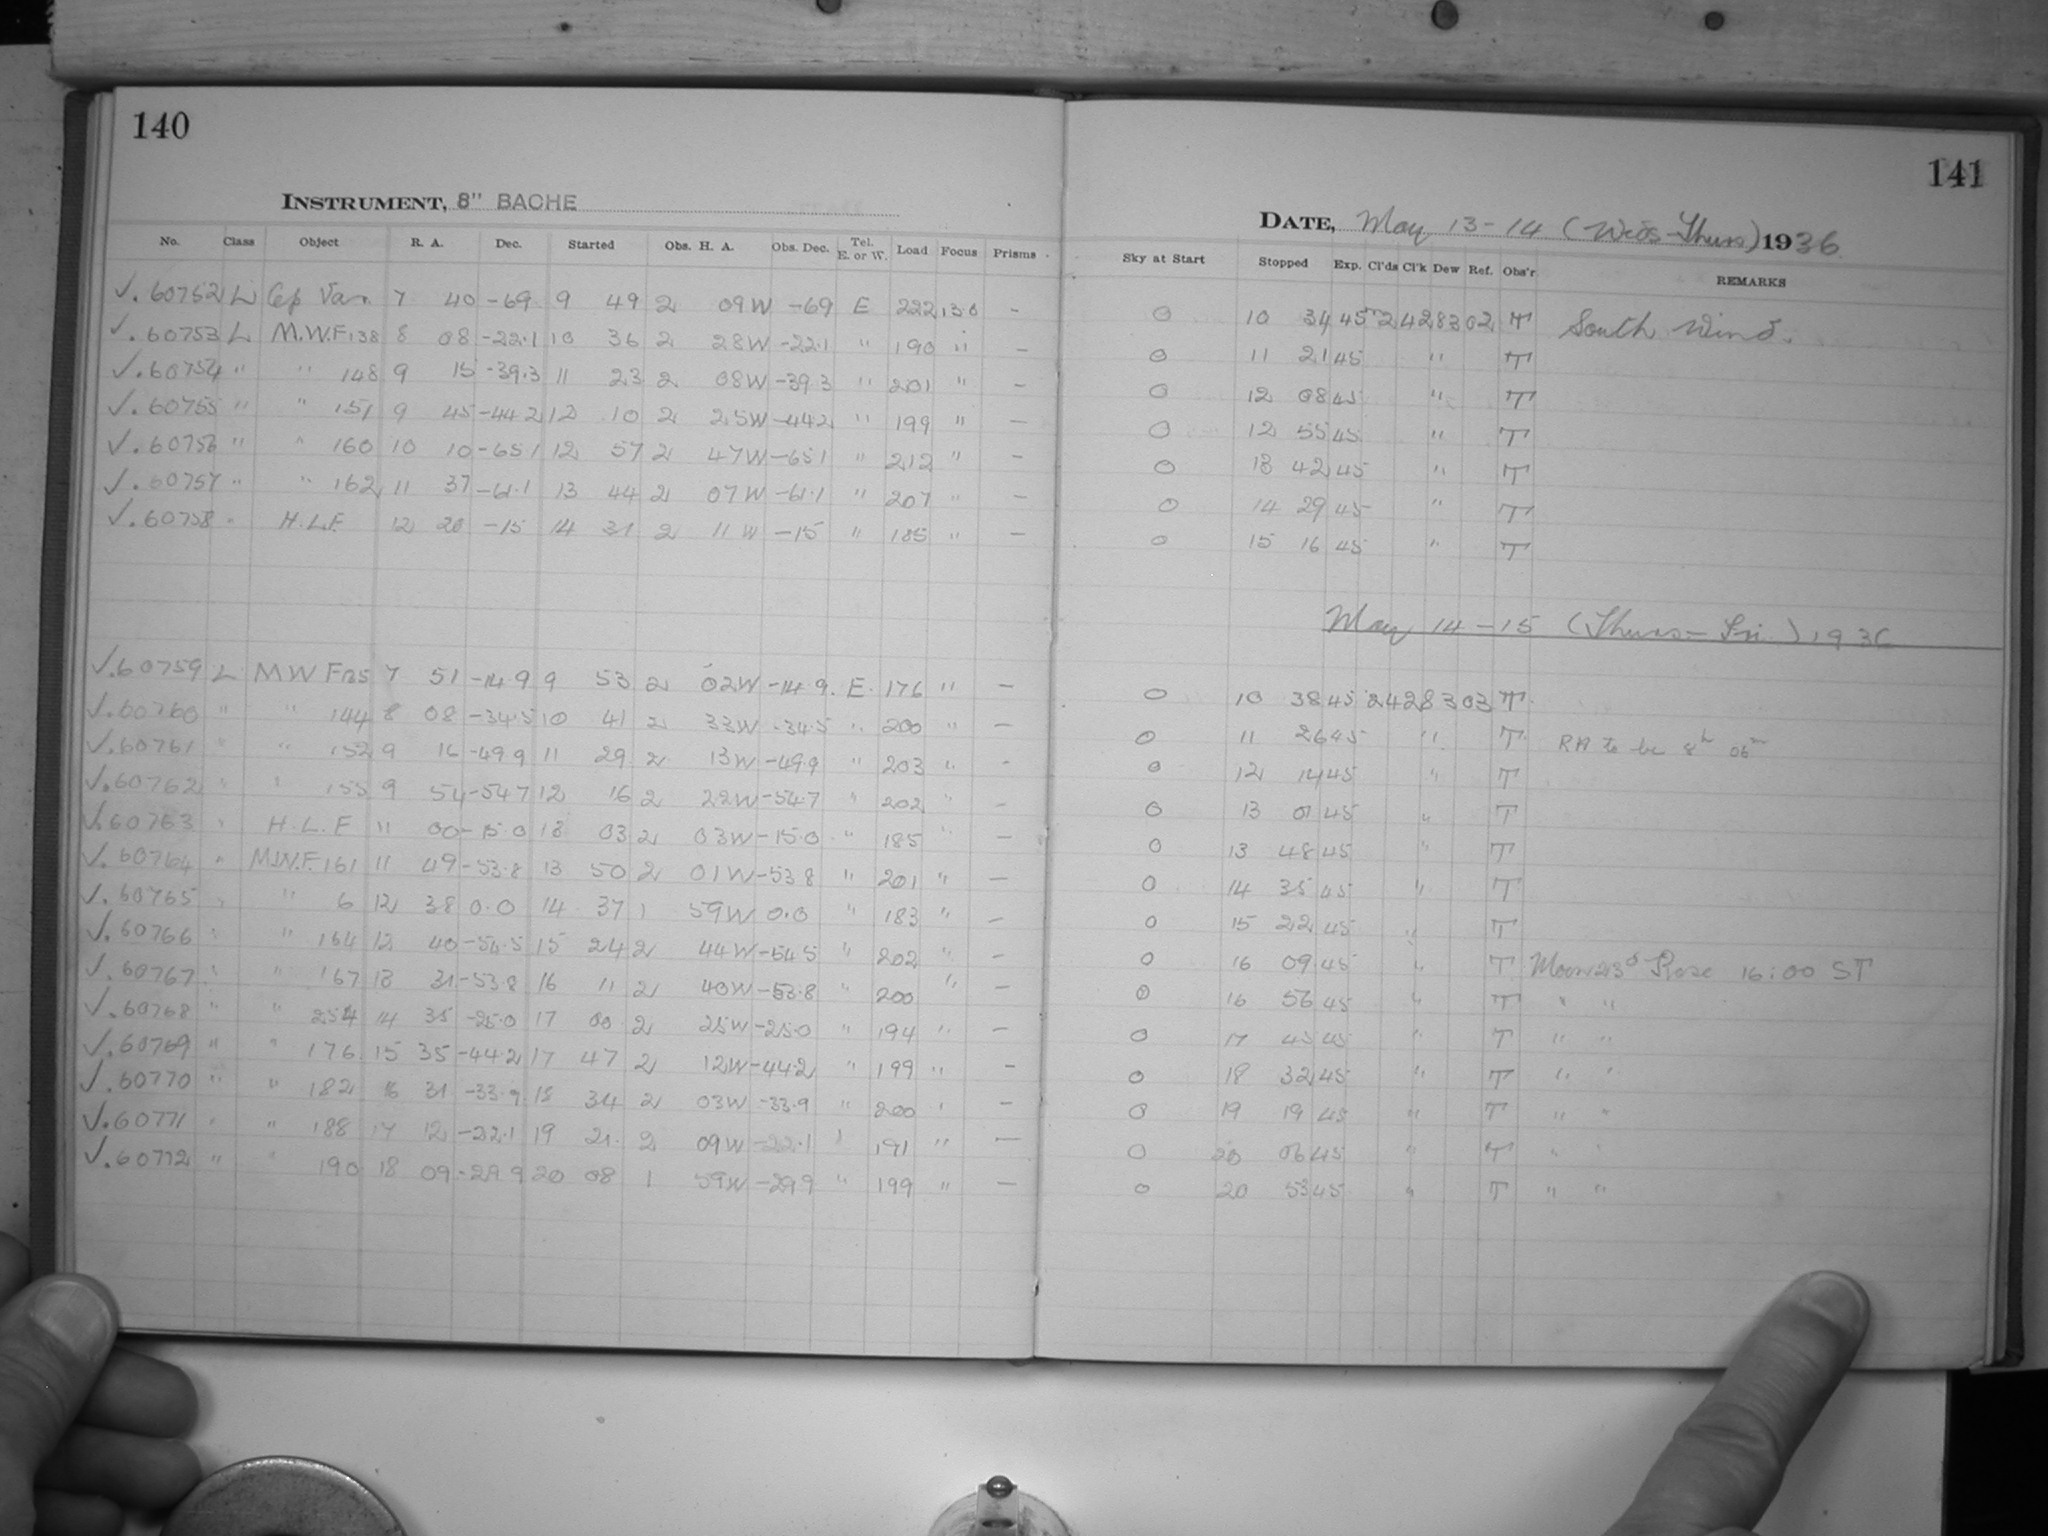 140
INSTRUMENT, 8" BACHE
No. Class Object R. A. Dec. Started Obs. H. A. Obs. Dec. Tel. E. or W. Load Focus Prisms
√. 60752 L Cep Var. 7 40 -69 9 49 2 09W -69 E 222 13.0 -
√. 60753 L M.W.F. 138 8 08 -22.1 10 36 2 28W -22.1 " 190 " -
√. 60754 " " 148 9 15 -39.3 11 23 2 08W -39.3 " 201 " -
√. 60755 " " 151 9 45 -44.2 12 10 2 25W -44.2 " 199 " -
√. 60756 " " 160 10 10 -65.1 12 57 2 47W -65.1 " 212 " -
√. 60757 " " 162 11 37 -61.1 13 44 2 07W -61.1 " 207 " -
√. 60758 " H.L.F. 12 20 -15 14 31 2 11W -15 " 185 " -
√. 60759 L M W F 135 7 51 -14.9 9 53 2 02W -14.9 E. 176 " -
√. 60760 " " 144 8 08 -34.5 10 41 2 33W -34.5 " 200 " -
√. 60761 " " 152 9 16 -49.9 11 29 2 13W -49.9 " 203 " -
√. 60762 " " 155 9 54 -54.7 12 16 2 22W -54.7 " 202 " -
√. 60763 " H.L.F 11 00 -15.0 13 03 2 03W -15.0 " 185 " -
√. 60764 " M.W.F. 161 11 49 -53.8 13 50 2 01W -53.8 " 201 " -
√. 60765 " " 6 12 38 0.0 14 37 1 59W 0.0 " 183 " -
√. 60766 " " 164 12 40 -54.5 15 24 2 44W -54.5 " 202 " -
√. 60767 " " 167 13 31 -53.8 16 11 2 40W -53.8 " 200 " -
√. 60768 " " 254 14 35 -25.0 17 00 2 25W -25.0 " 194 " -
√. 60769 " " 176 15 35 -44.2 17 47 2 12W -44.2 " 199 " -
√. 60770 " " 182 16 31 -33.9 18 34 2 03W -33.9 " 200 " -
√. 60771 " " 188 17 12 -22.1 19 21 2 09W -22.1 " 191 " -
√. 60772 " " 190 18 09 -29.9 20 08 1 59W -29.9 " 199 " -
141
DATE, May 13-14 (Weds-Thurs) 1936
Sky at Start Stopped Exp. Cl'ds Cl'k Dew Ref. Obs'r REMARKS
0 10 34 45m 24 28 3 02 T South Wind.
0 11 21 45 " T
0 12 08 45 " T
0 12 55 45 " T
0 13 42 45 " T
0 14 29 45 " T
0 15 16 45 " T
May 14-15 (Thurs-Fri) 1936
0 10 38 45 24 28 3 03 T
0 11 26 45 " T RA to be 8h 06m
0 12 14 45 " T
0 13 01 45 " T
0 13 48 45 " T
0 14 35 45 " T
0 15 22 45 " T
0 16 09 45 " T Rose 16:00 ST
0 16 56 45 " T " "
0 17 45 45 " T " "
0 18 32 45 " T " "
0 19 19 45 " T " "
0 20 06 45 " T " "
0 20 53 45 " T " "